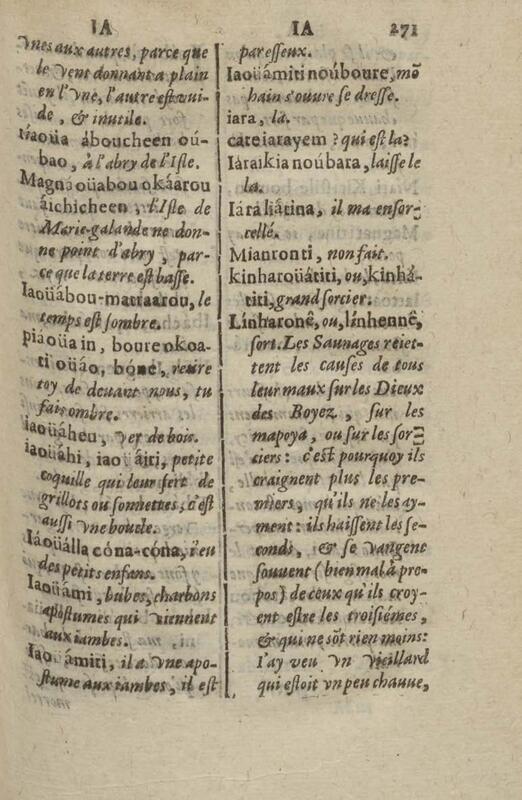 IA
IA
271
Vnes aux autres, parce que
le vent donnant a plain
en l'vne, l'autre est vui-
de, & inutile.
tíaoüa áboucheen oú-
bao, à l'abry de l'Isle.
Magnáoüabou okáarou
áichicheen, l'Isle de
Marie-galande ne don-
ne point d'abry, par-
ce que la terre est basse.
Iaoüábou-mattaarou, le
temps est sombre.
piáoüa in, boure okoa-
ti oüáo, bóne, retire
toy de deuant nous, tu
fais ombre.
iaoüáheu, ver de bois.
iaoüáhi, iaoüáiti, petite
coquille qui leur sert de
grillots ou sonnettes; c'est
aussi vne boucle.
Iáoüálla cóna-cóna, ieu
des petits enfans.
Iaoüámi, bubes, charbons
apostumes qui viennent
aux iambes.
Iaoüámiti, il a vne apo-
stume aux iambes, il est
paresseux.
Iaoüámiti noúboure, mõ
hain s'ouure se dresse.
iara, là.
cate iarayem? qui est la?
Iáraikia noúbara, laisse le
la.
Iáraliátina, il ma ensor-
cellé.
Mianronti, non fait.
kinharoüátiti, ou, kinhá-
titi, grand sorcier.
Línharonê, ou, línhennê,
sort. Les Sauuages reiet-
tent les causes de tous
leur maux sur les Dieux
des Boyez, sur les
mapoya, ou sur les sor-
ciers: c'est pourquoy ils
craignent plus les pre-
miers, qu'ils ne les ay-
ment: ils haissent les se-
conds, & se vangent
souuent (bien mal à pro-
pos) de ceux qu'ils croy-
ent estre les troisiémes,
& qui ne sõt rien moins:
I'ay veu vn vieillard
qui estoit vn peu chauue,